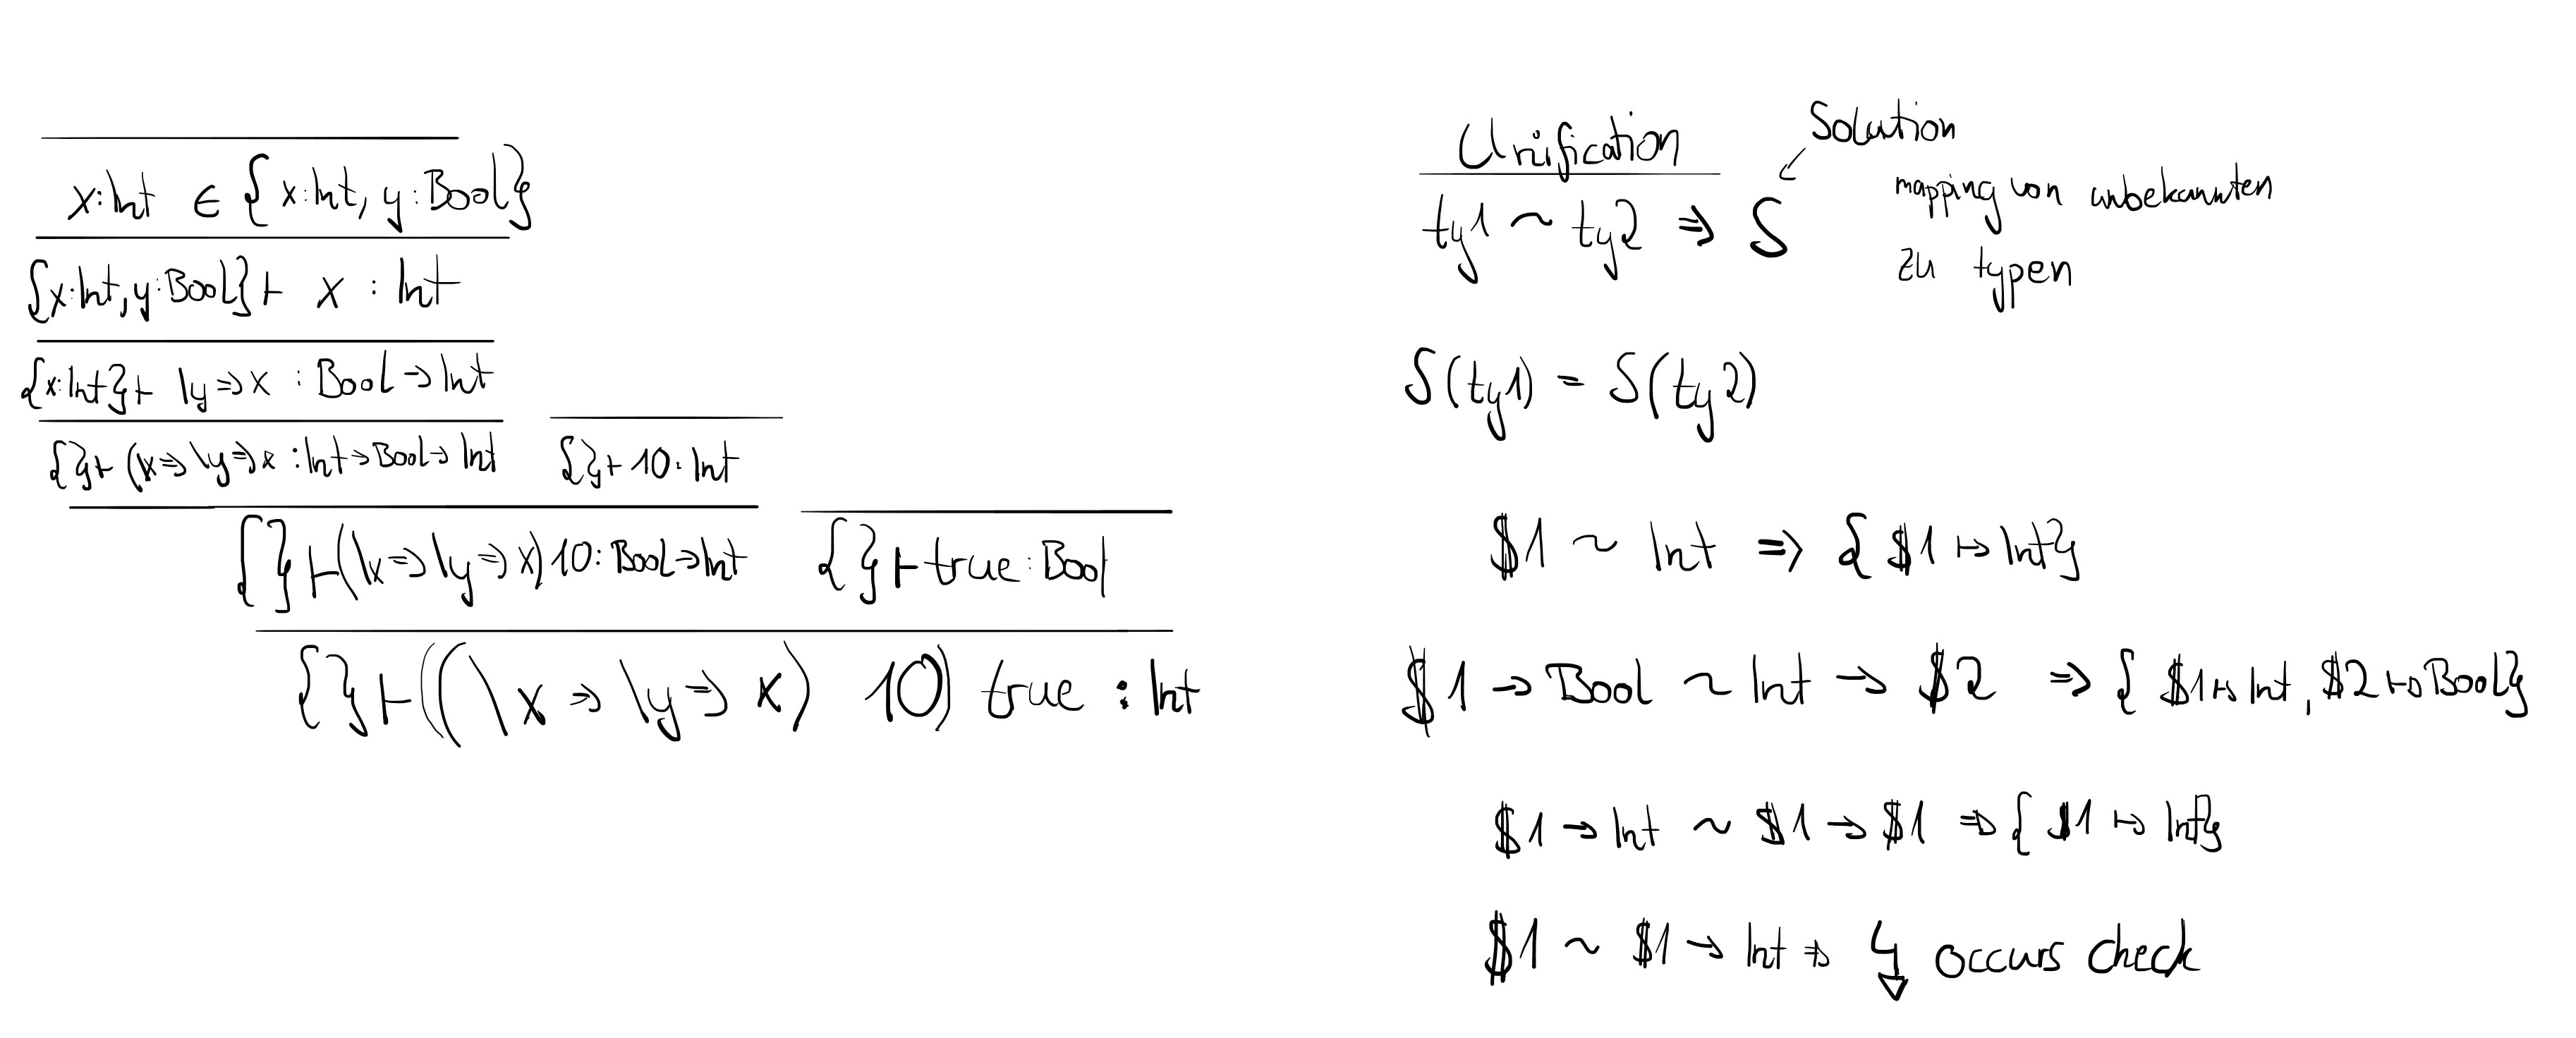 x:Int ∈ {x:Int, y:Bool}
{x:Int, y:Bool} ⊢ x : Int
{x:Int} ⊢ \y => x : Bool → Int
{} ⊢ (\x => \y => x : Int → Bool → Int
{} ⊢ 10 : Int
{} ⊢ (\x => \y => x) 10 : Bool → Int
{} ⊢ true : Bool
{} ⊢ ((\x => \y => x) 10) true : Int
Unification
Solution
ty1 ~ ty2 => S
mapping von unbekannten
zu typen
S(ty1) = S(ty2)
$1 ~ Int => { $1 ↦ Int}
$1 → Bool ~ Int → $2 => { $1 ↦ Int, $2 ↦ Bool}
$1 → Int ~ $1 → $1 => { $1 ↦ Int}
$1 ~ $1 → Int => ↯ occurs check